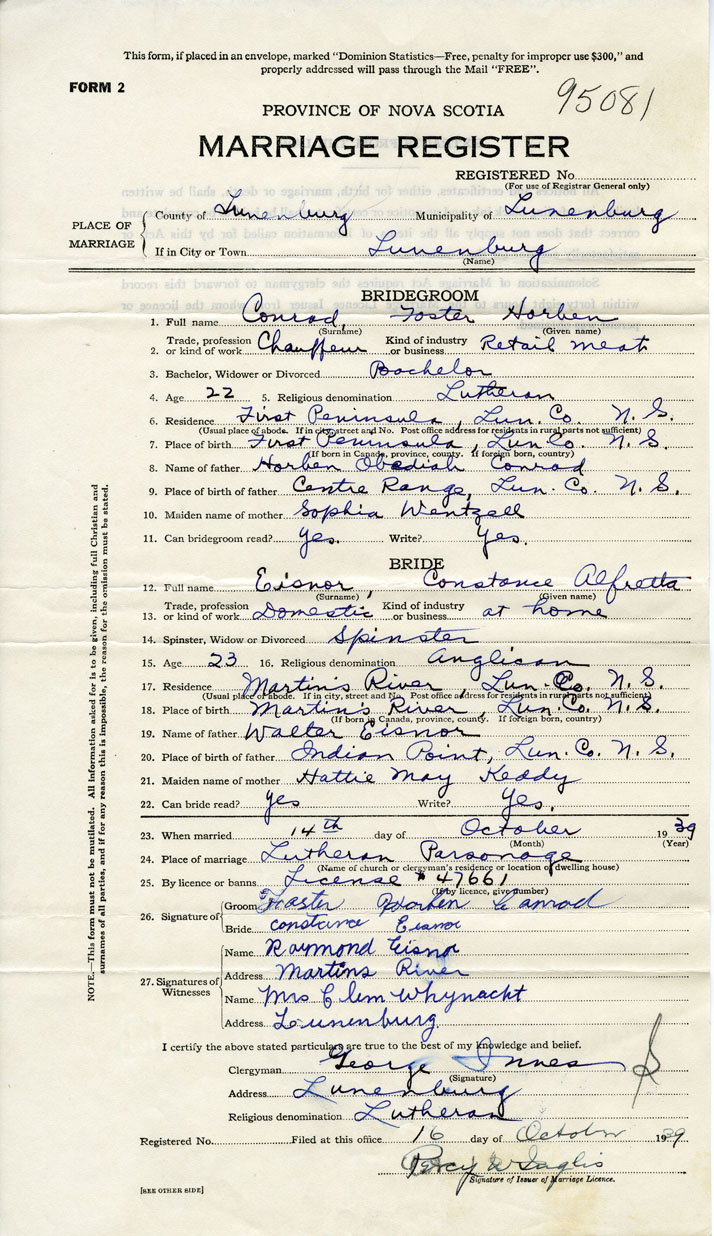 This form, if placed in an envelope, marked "Dominion Statistics—Free, penalty for improper use $300," and
properly addressed will pass through the Mail "FREE".
FORM 2
95081
PROVINCE OF NOVA SCOTIA
MARRIAGE REGISTER
REGISTERED No.
(For use of Registrar General only)
PLACE OF MARRIAGE
County of Lunenburg Municipality of Lunenburg
If in City or Town Lunenburg
(Name)
BRIDEGROOM
1. Full name Conrad, Foster Horben
(Surname) (Given name)
2. Trade, profession or kind of work Chauffeur Kind of industry or business Retail meat
3. Bachelor, Widower or Divorced Bachelor
4. Age 22 5. Religious denomination Lutheran
6. Residence First Peninsula, Lun. Co. N. S.
(Usual place of abode. If in city, street and No. Post office address for residents in rural parts not sufficient)
7. Place of birth First Peninsula, Lun Co. N. S.
(If born in Canada, province, county. If foreign born, country)
8. Name of father Horben Obediah Conrad
9. Place of birth of father Centre Range, Lun. Co. N. S.
10. Maiden name of mother Sophia Wentzell
11. Can bridegroom read? Yes. Write? Yes.
BRIDE
12. Full name Eisnor, Constance Alfretta
(Surname) (Given name)
13. Trade, profession or kind of work Domestic Kind of industry or business at home
14. Spinster, Widow or Divorced Spinster
15. Age 23 16. Religious denomination Anglican
17. Residence Martin's River Lun. Co. N. S.
(Usual place of abode. If in city, street and No. Post office address for residents in rural parts not sufficient)
18. Place of birth Martin's River, Lun. Co. N. S.
(If born in Canada, province, county. If foreign born, country)
19. Name of father Walter Eisnor
20. Place of birth of father Indian Point, Lun. Co. N. S.
21. Maiden name of mother Hattie May Keddy
22. Can bride read? Yes Write? Yes.
23. When married 14th day of October 1939
(Month) (Year)
24. Place of marriage Lutheran Parsonage
(Name of church or clergyman's residence or location of dwelling house)
25. By licence or banns License # 47661
(If by licence, give number)
26. Signature of
Groom Foster Horben Conrad
Bride constance Eisnor
27. Signatures of Witnesses
Name Raymond Eisnor
Address Martins River
Name Mrs Clem Whynacht
Address Lunenburg
I certify the above stated particulars are true to the best of my knowledge and belief.
Clergyman George Innes
(Signature)
Address Lunenburg
Religious denomination Lutheran
Registered No. Filed at this office 16 day of October 1939
Percy
Signature of Issuer of Marriage Licence.
[SEE OTHER SIDE]
NOTE.—This form must not be mutilated. All information asked for is to be given, including full Christian and
surnames of all parties, and if for any reason this is impossible, the reason for the omission must be stated.